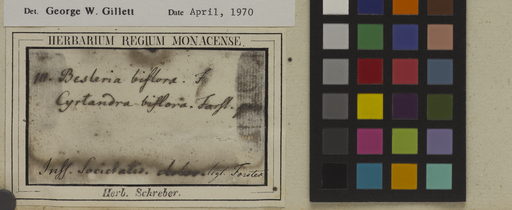 Det. George W. Gillett Date April, 1970
HERBARIUM REGIUM MONACENSE.
10. Besleria biflora. F.
Cyrtandra biflora. Forst.
Insl. Societatis. Forster
Herb. Schreber.